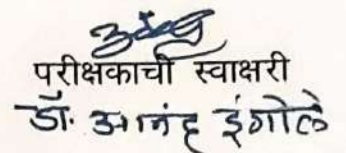 परीक्षकाची स्वाक्षरी
डॉ. आनंद इंगोले